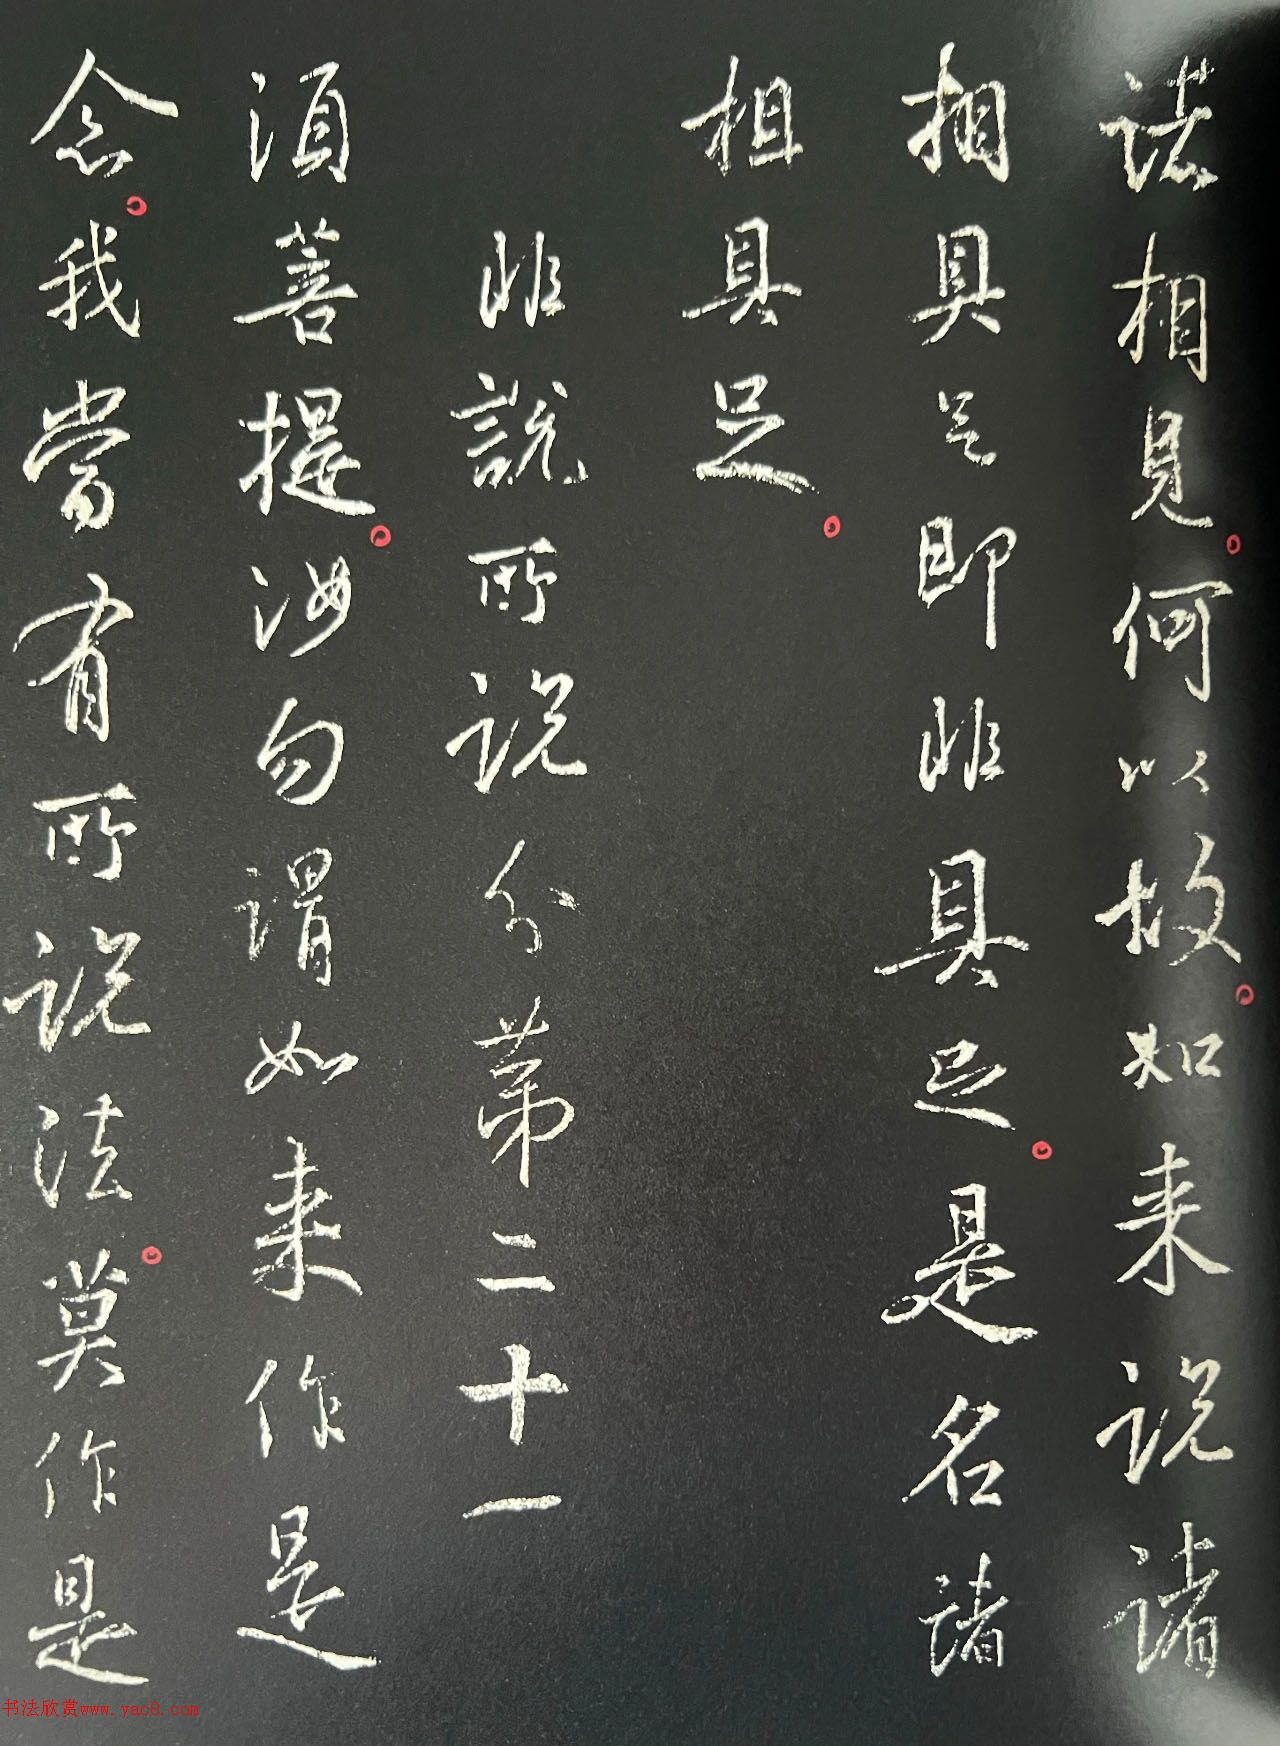 诸相見。何以故。如来说諸
相具足即非具足。是名諸
相具足。
非説所说分第二十一
須菩提。汝勿謂如来作是
念。我當有所说法。莫作是
书法欣赏www.yac8.com